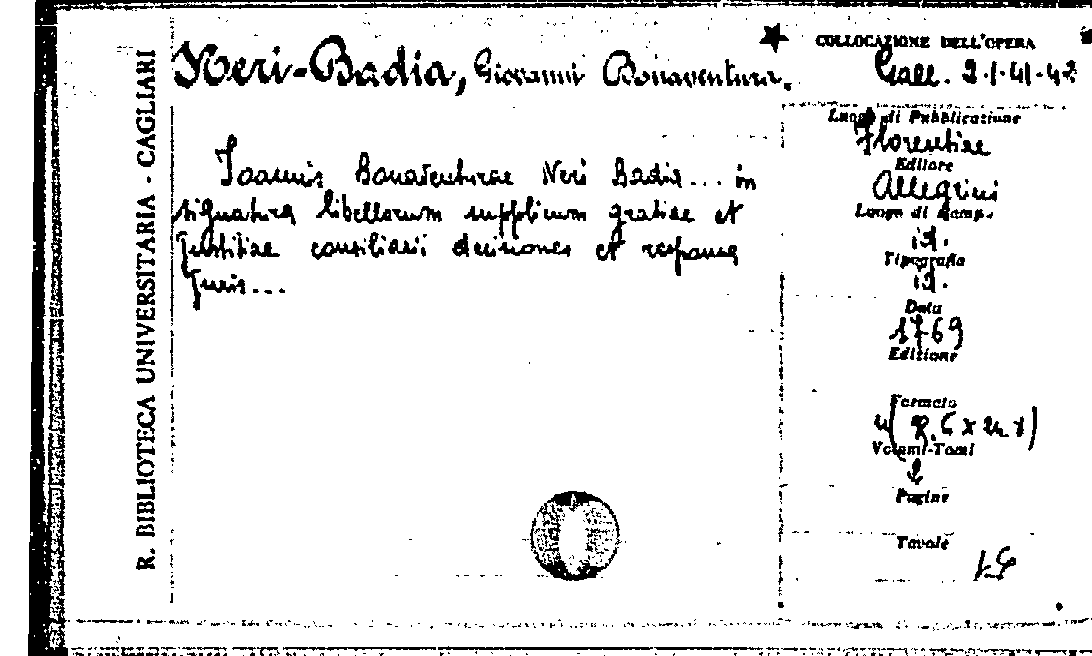 R. BIBLIOTECA UNIVERSITARIA - CAGLIARI
Neri-Badia, Giovanni Bonaventura.
Ioannis Bonaventurae Neri Badia... in
signatura libellorum supplicum gratiae et
Justitiae consiliarii decisiones et responsa
Juris...
COLLOCAZIONE DELL'OPERA
Gall. 2.1.41-42
Luogo di Pubblicazione
Florentiae
Editore
Allegrini
Luogo di stamp.
id.
Tipografia
id.
Data
1769
Edizione
Formato
Volumi-Tomi
2
Pagine
Tavole